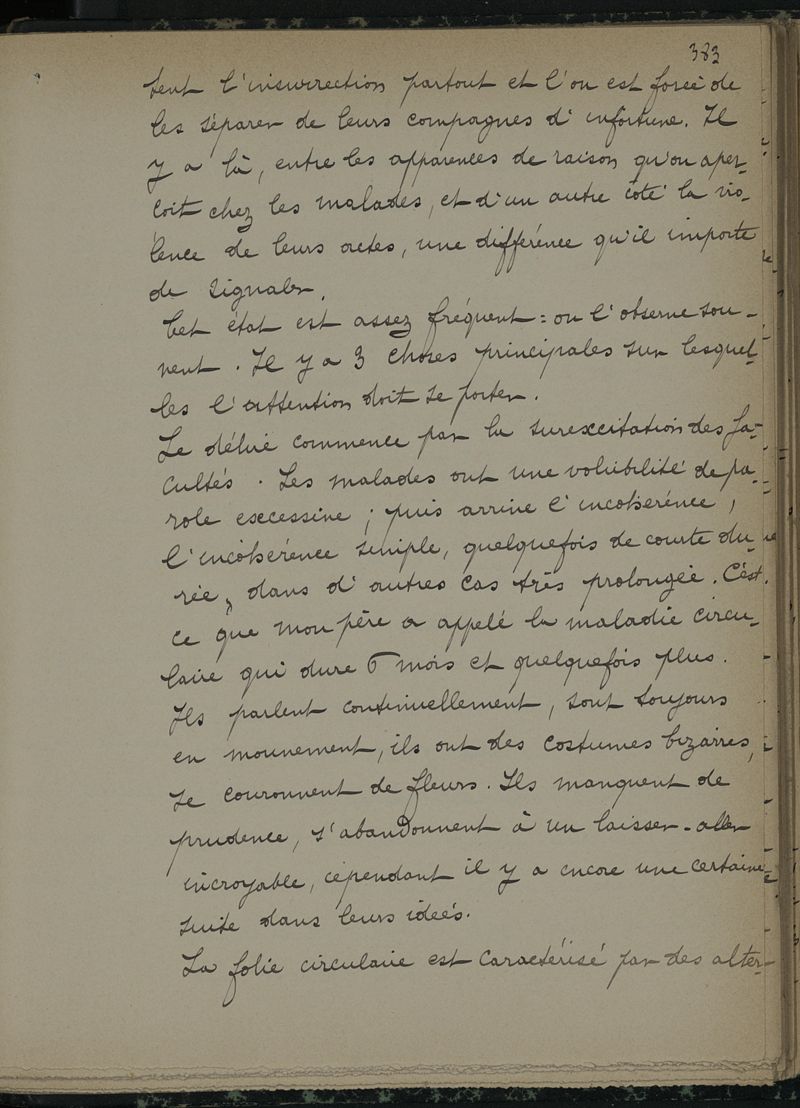 383
tent l'insurrection partout et l'on est forcé de
les séparer de leurs compagnes d'infortune. Il
y a là, entre les apparences de raison qu'on aper-
çoit chez les malades, et d'un autre côté la vio-
lence de leurs actes, une différence qu'il importe
de signaler.
Cet état est assez fréquent : on l'observe sou-
vent. Il y a 3 choses principales sur lesquel-
les l'attention doit se porter.
Le délire commence par la surexcitation des fa-
cultés. Les malades ont une volubilité de pa-
role excessive ; puis arrive l'incohérence,
l'incohérence simple, quelquefois de courte du-
rée, dans d'autres cas très prolongée. C'est
ce que mon père a appelé la maladie circu-
laire qui dure 6 mois et quelquefois plus.
Ils parlent continuellement, sont toujours
en mouvement, ils ont des costumes bizarres,
se couronnent de fleurs. Ils manquent de
prudence, s'abandonnent à un laisser-aller
incroyable, cependant il y a encore une certaine
suite dans leurs idées.
La folie circulaire est caractérisé par des alter-